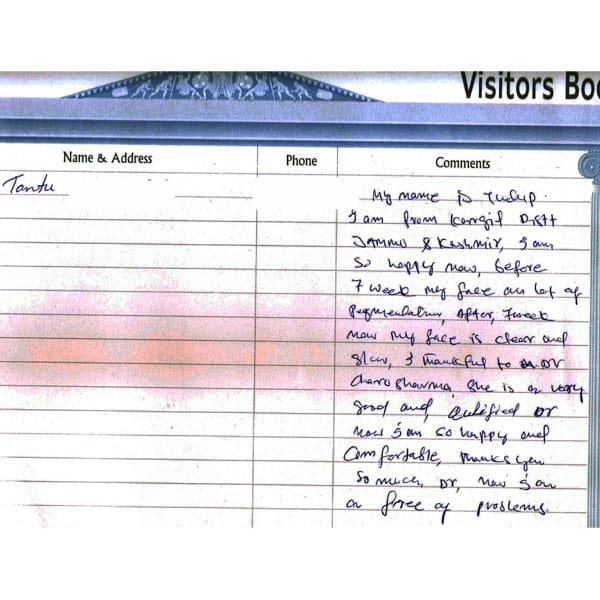 Visitors Boo
Name & Address
Phone
Comments
Tantu
My name is
I am from Kargil Distt
Jammu & Kashmir, I am
So happy now, before
7 week my face an lot of
Pegmentation, After, 7 week
now my face is clear and
glow, I thankful to Dr
Charu Sharma, She is a very
good and, Qulified Dr
now I am so happy and
Comfortable, thanks you
So much, Dr, now I am
a free of problems.